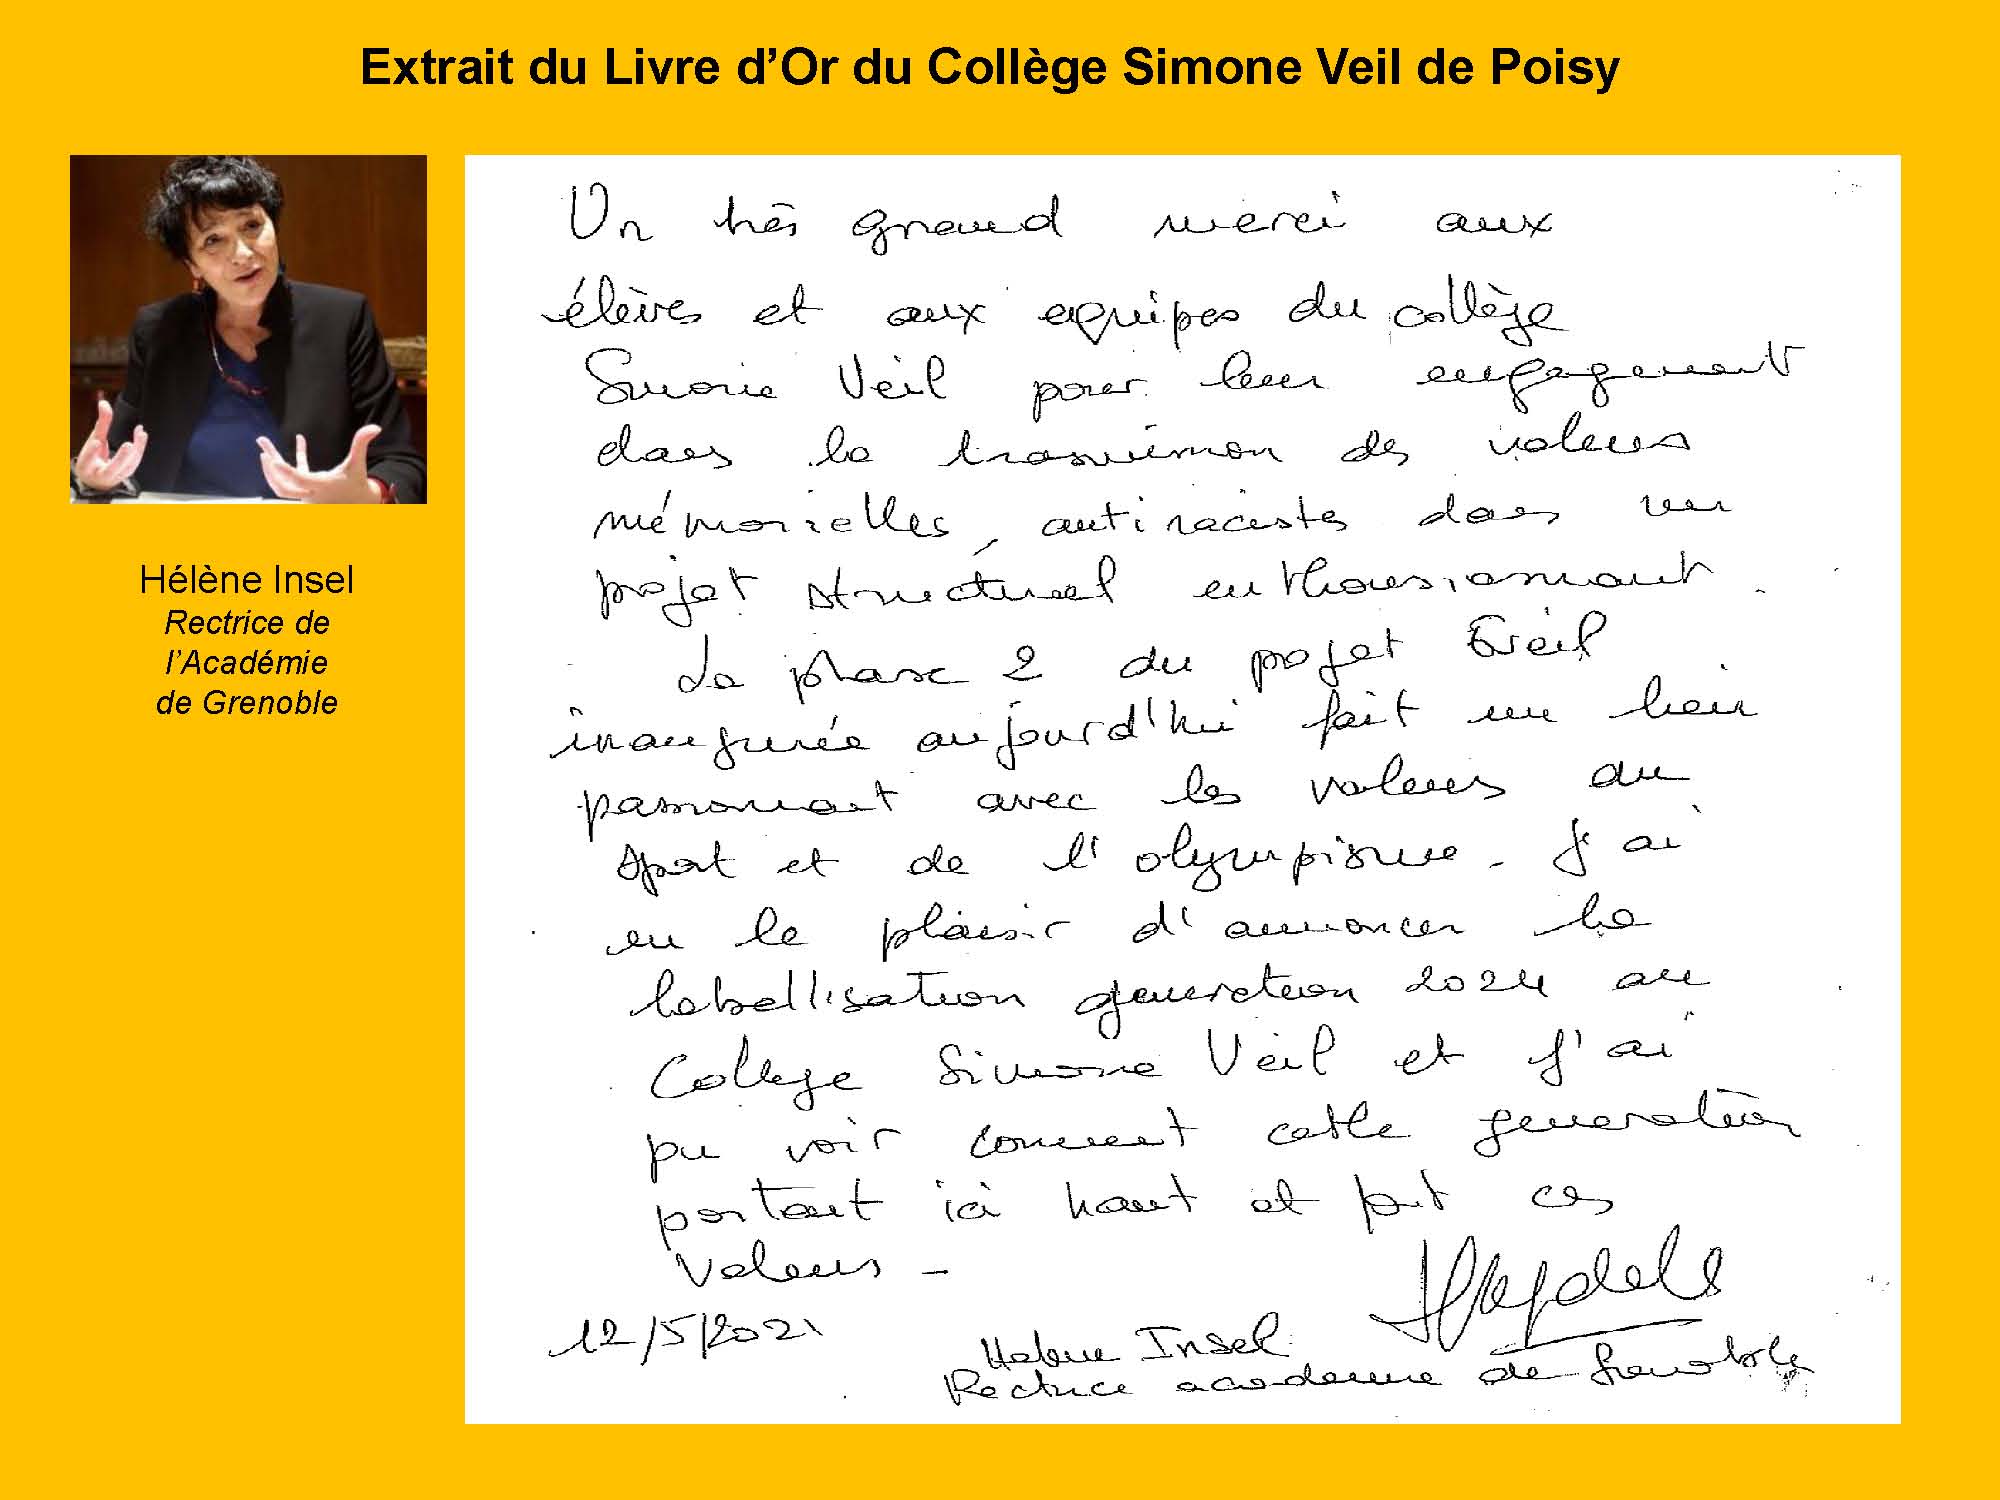 Extrait du Livre d’Or du Collège Simone Veil de Poisy
Hélène Insel
Rectrice de
l’Académie
de Grenoble
Un très grand merci aux
élèves et aux equipes du collège
Simone Veil pour leur engagement
dans la transmission des valeurs
mémorielles, antiracistes dans un
projet structurel enthousiasmant.
La phase 2 du projet Eveil
inaugurée aujourd'hui fait un lien
passionnant avec les valeurs du
sport et de l'olympisme. J'ai
eu le plaisir d'annoncer la
labellisation generation 2024 au
College Simone Veil et j'ai
pu voir comment cette generation
portait ici haut et fort ces
Valeurs -
12/5/2021
Helene Insel
Rectrice academie de Grenoble